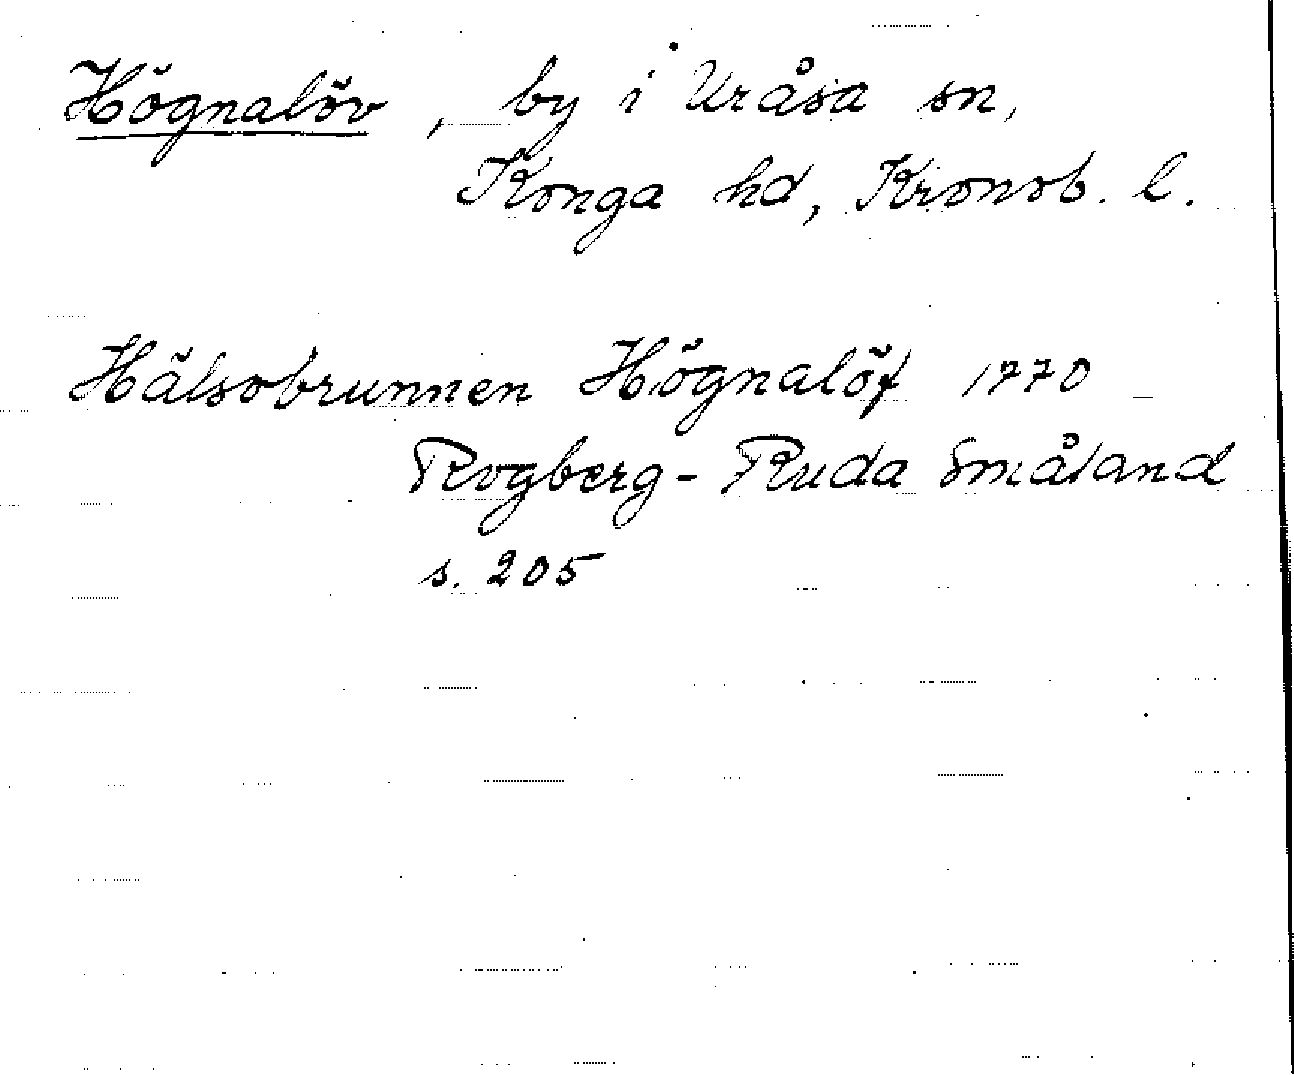 Högnalöv, by i Uråsa sn,
Konga hd, Kronob. l.
Hälsobrunnen Högnalöf 1770
Rogberg-Ruda Småland
s. 205